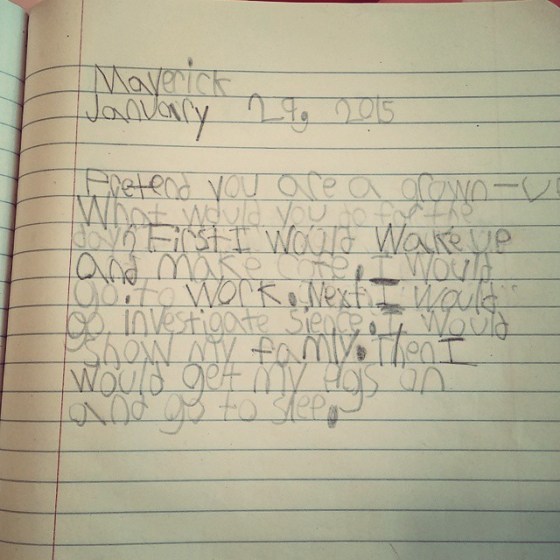 Maverick
January 29, 2015
Pretend you are a grown-u
What would you go for the
day? First I would Wake ue
and make cofe. I would
go. to work. Next I would
go investigate sience. I would
show my famly. Then I
would get my Pgs on
and go to sleep.